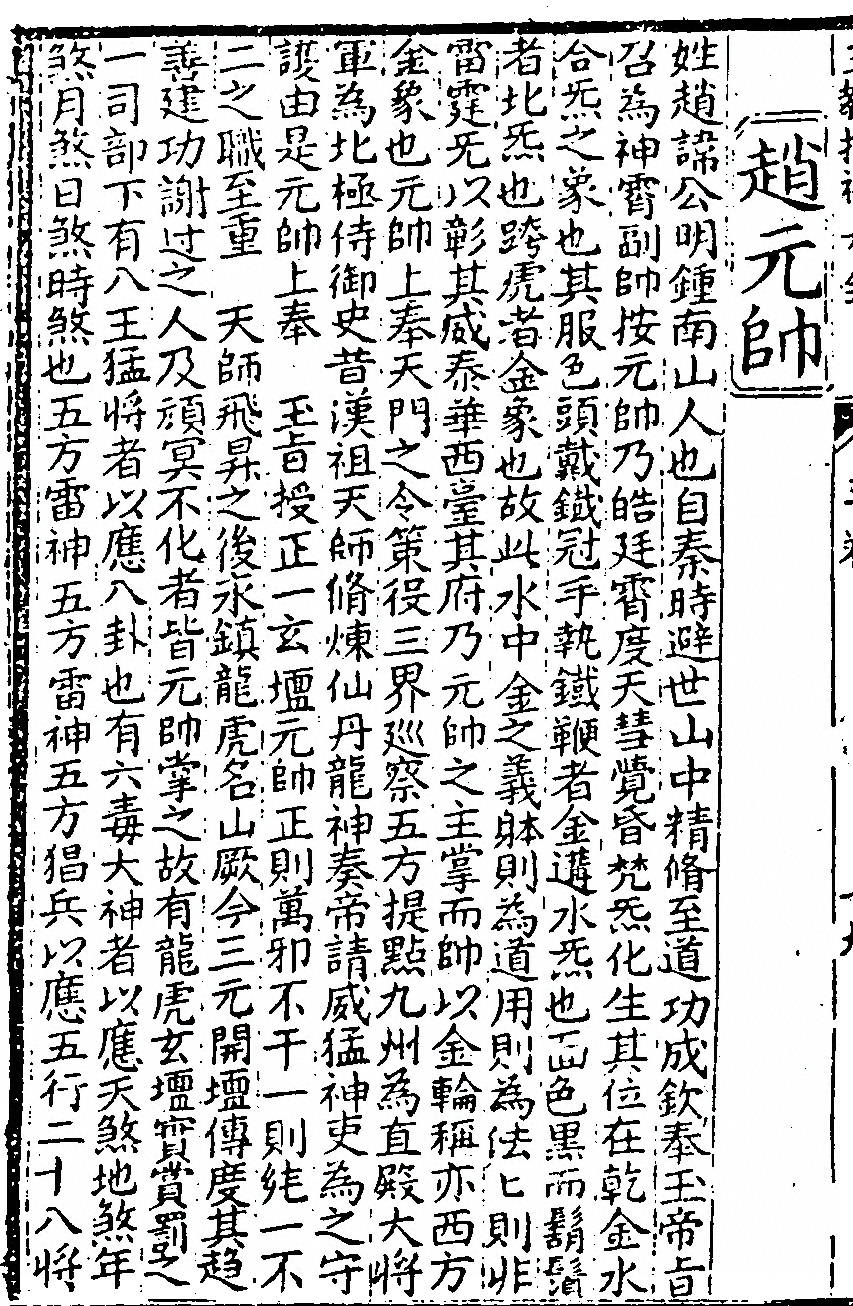 趙元帥
姓趙諱公明鍾南山人也自秦時避世山中精脩至道功成欽奉玉帝旨
召為神霄副帥按元帥乃皓廷霄度天彗覺昏梵炁化生其位在乾金水
合炁之象也其服色頭戴鐵冠手執鐵鞭者金遘水炁也面色黑而鬍鬚
者北炁也跨虎者金象也故此水中金之義躰則為道用則為法匕則非
雷霆旡以彰其威泰華西臺其府乃元帥之主掌而帥以金輪稱亦西方
金象也元帥上奉天門之令策役三界巡察五方提點九州為直殿大將
軍為北極侍御史昔漢祖天師脩煉仙丹龍神奏帝請威猛神吏為之守
護由是元帥上奉 玉旨授正一玄壇元帥正則萬邪不干一則純一不
二之職至重 天師飛昇之後永鎮龍虎名山厥今三元開壇傳度其趋
善建功謝过之人及頑冥不化者皆元帥掌之故有龍虎玄壇實賞罰之
一司部下有八王猛将者以應八卦也有六毒大神者以應天煞地煞年
煞月煞日煞時煞也五方雷神五方雷神五方猖兵以應五行二十八將